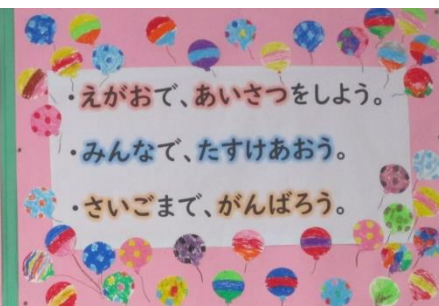 ・えがおで、あいさつをしよう。
・みんなで、たすけあおう。
・さいごまで、がんばろう。